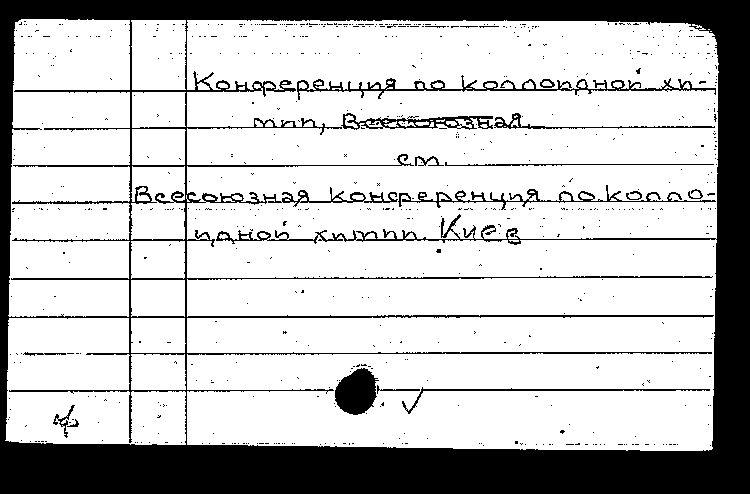 Конференция по коллоидной хи-
мии, Всесоюзная.
см.
Всесоюзная конференция по колло-
идной химии. Киев
кф